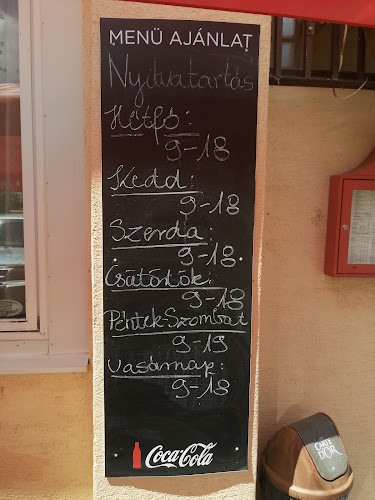 MENÜ AJÁNLAT
Nyitvatartás
Hétfő:
9-18
Kedd:
9-18
Szerda:
9-18
Csütörtök:
9-18
Péntek-Szombat
9-19
vasárnap:
9-18
Coca-Cola
CARTE
D'OR